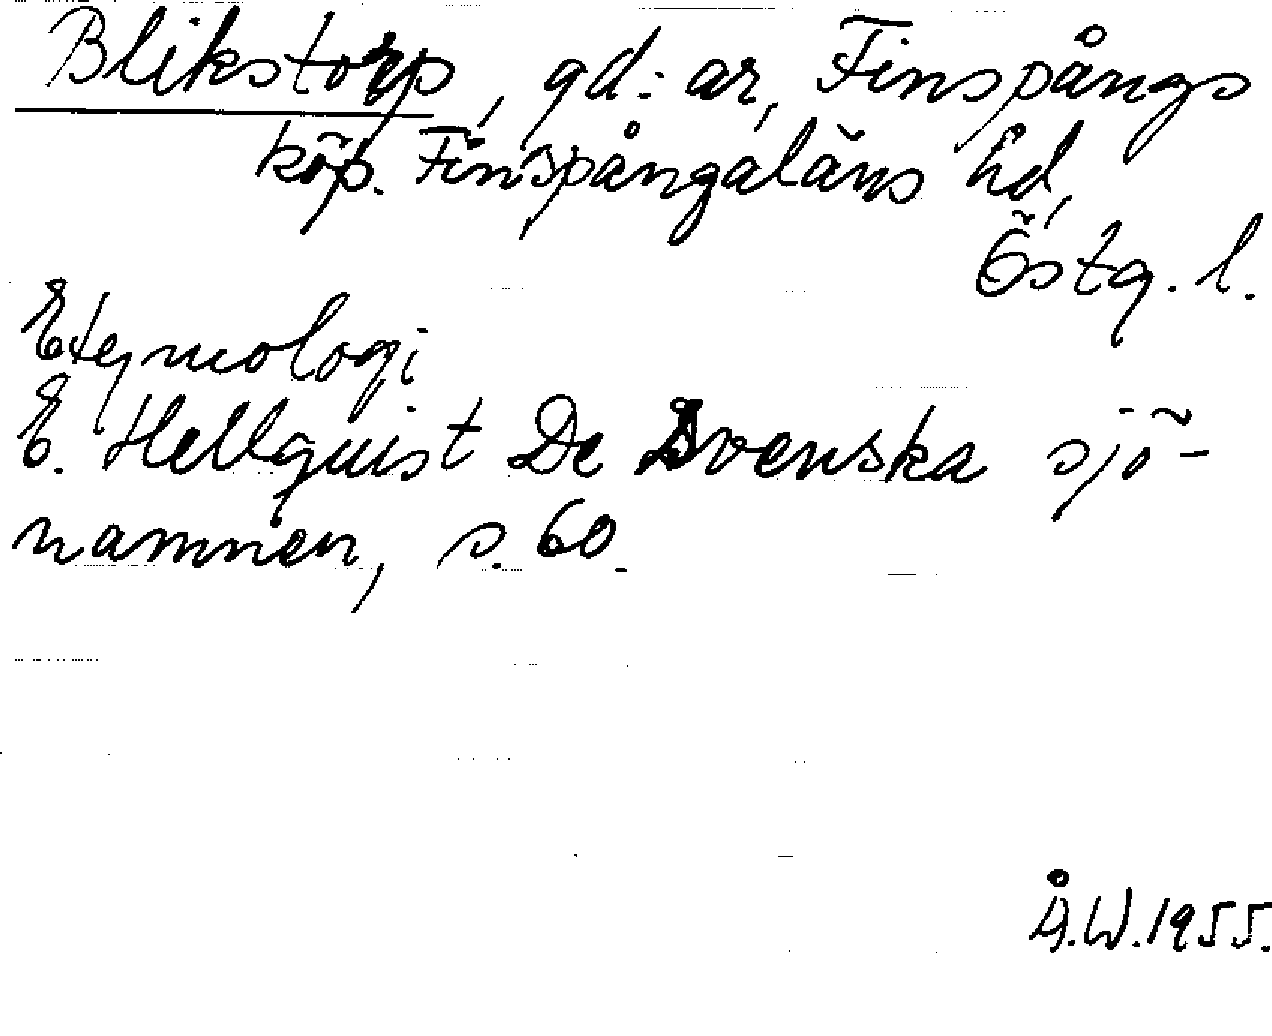 Blikstorp, gd:ar, Finspångs
köp. Finspångaläns hd,
Östg. l.
Etymologi
E. Hellquist De Svenska sjö-
namnen, s. 60.
Å.W.1955.